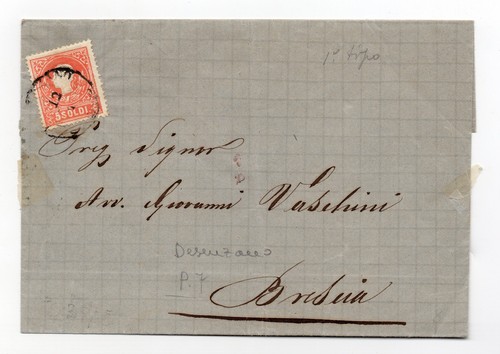 1° tipo
5 SOLDI
Preg Signor
Avv. Giovanni
Desenzano
P. 7
Brescia